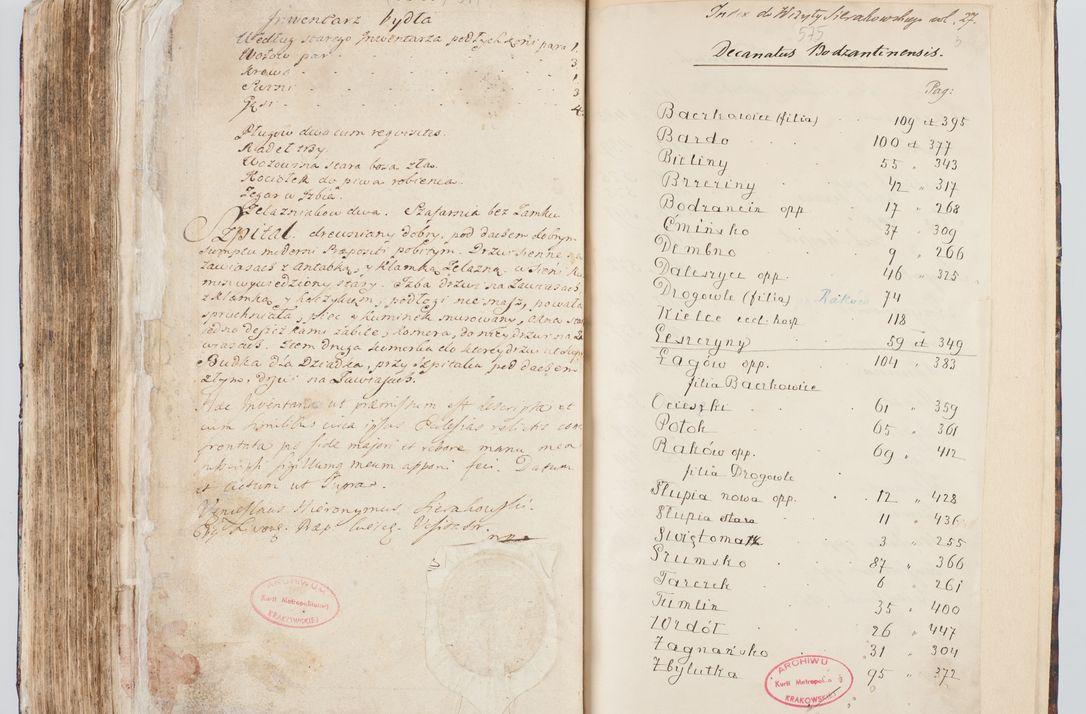 Inwentarz bydła
Według starego Inwentarza podłych koni para 1.
Wołow par . . . 3
Krowa . . . 1
Swini . . . 3
Gęsi . . . 4.
Pługow dwa cum requisitis.
Radeł trzy.
Wozowina stara boza zła.
Kociołek do piwa robienia.
Zegar w Izbie.
Zelazniakow dwa. Szafarnia bez Zamku
Szpital drewniany dobry, pod dachem dobrym
sumptu moderni Praepositi pobitym. Drzwi sienne na
zawiasach z Antabką, y klamką Zelazną, w Sieni ko
min wypiedziony stary. Izba drzwi na Zawiasach
z klamką y haczykiem, podłogi nie masz, powała
spruchniała, piec y kuminek murowany, okna sta
iedno deszczkami zabite, komora, do niey drzwi na Za
wiasach. Item druga komorka do ktorey drzwi ut supra
Budka dla Dziadka, przy Szpitalu pod dachem
złym, drzwi na Zawiasach.
Hac Inventaria ut praemissum est descripta et
cum hominibus circa ipsas Ecclesias relictis con
frontata pro fide majori et robore manu mea
subscripsi sigillumq meum apponi feci. Datum
et Actum ut Supra.
Venceslaus Hieronymus Sierakowski.
mp
ARCHIWUM
Kurii Metropolitalnej
KRAKOWSKIEJ
Index do Wizyty Sierakowskiego vol. 27.
573
Decanatus Bodzantinensis.
Pag:
Baćkowice (filia) . . 109 et 395
Bardo . . 100 et 377
Bieliny . . 55 " 343
Brzeziny . . 42 " 317
Bodzancin opp . . 17 " 268
Cmińsko . . 37 " 309
Dembno . . 9 " 266
Daleszyce opp. . . 46 " 325
Drogowle (filia) Raków 74
Kielce eccl. hosp . 118
Leszczyny . . 59 et 349
Łagów opp. . . 104 " 383
filia Baczkowice
Ociesęki . . 61 " 359
Potok . . 65 " 361
Raków opp. . . 69 " 412
filia Drogowle
Słupia nowa opp. . . 12 " 428
Słupia stara . . 11 " 436
Świętomarz . . 3 " 255
Szumsko . . 87 " 366
Tarczek . . 6 " 261
Tumlin . . 35 " 400
Wzdół . . 26 " 447
Zagnańsko . . 31 " 304
Zbylutka . . 95 " 372
ARCHIWU
Kurii Metropol
KRAKOWSKI